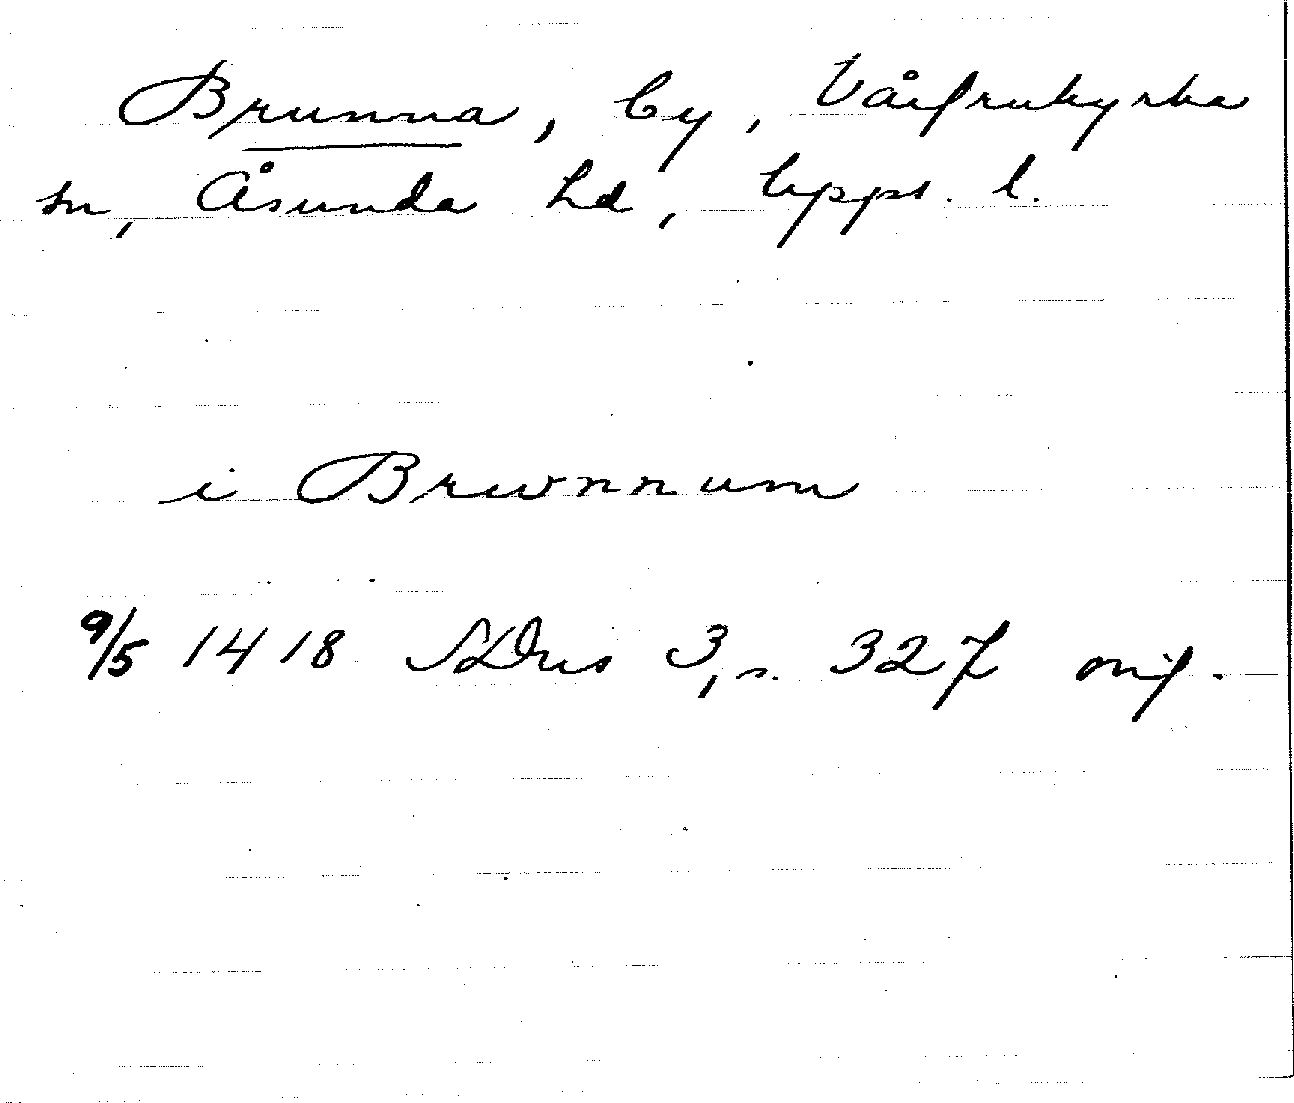 Brunna, by, Vårfrukyrka
sn, Åsunda hd, Upps. l.
i Brwnnum
9/5 1418 SDns 3, s. 327 orig.